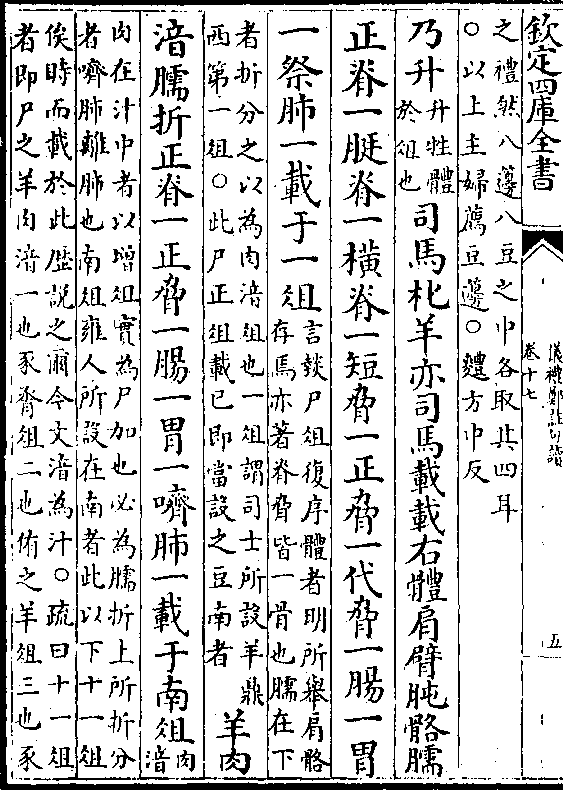 欽定四庫全書
儀禮鄭註句讀
卷十七
五
之禮然八籩八豆之中各取其四耳
○以上主婦薦豆籩○麷方中反
乃升升牲體
於俎也司馬朼羊亦司馬載載右體肩臂肫骼臑
正脊一脡脊一橫脊一短脅一正脅一代脅一腸一胃
一祭肺一載于一俎言燅尸俎復序體者明所舉肩骼
存焉亦著脊脅皆一骨也臑在下
者折分之以為肉湆俎也一俎謂司士所設羊鼎
西第一俎○此尸正俎載已即當設之豆南者羊肉
湆臑折正脊一正脅一腸一胃一嚌肺一載于南俎肉湆
肉在汁中者以增俎實為尸加也必為臑折上所折分
者嚌肺離肺也南俎雍人所設在南者此以下十一俎
俟時而載於此歷說之爾今文湆為汁○疏曰十一俎
者即尸之羊肉湆一也豕脀俎二也侑之羊俎三也豕